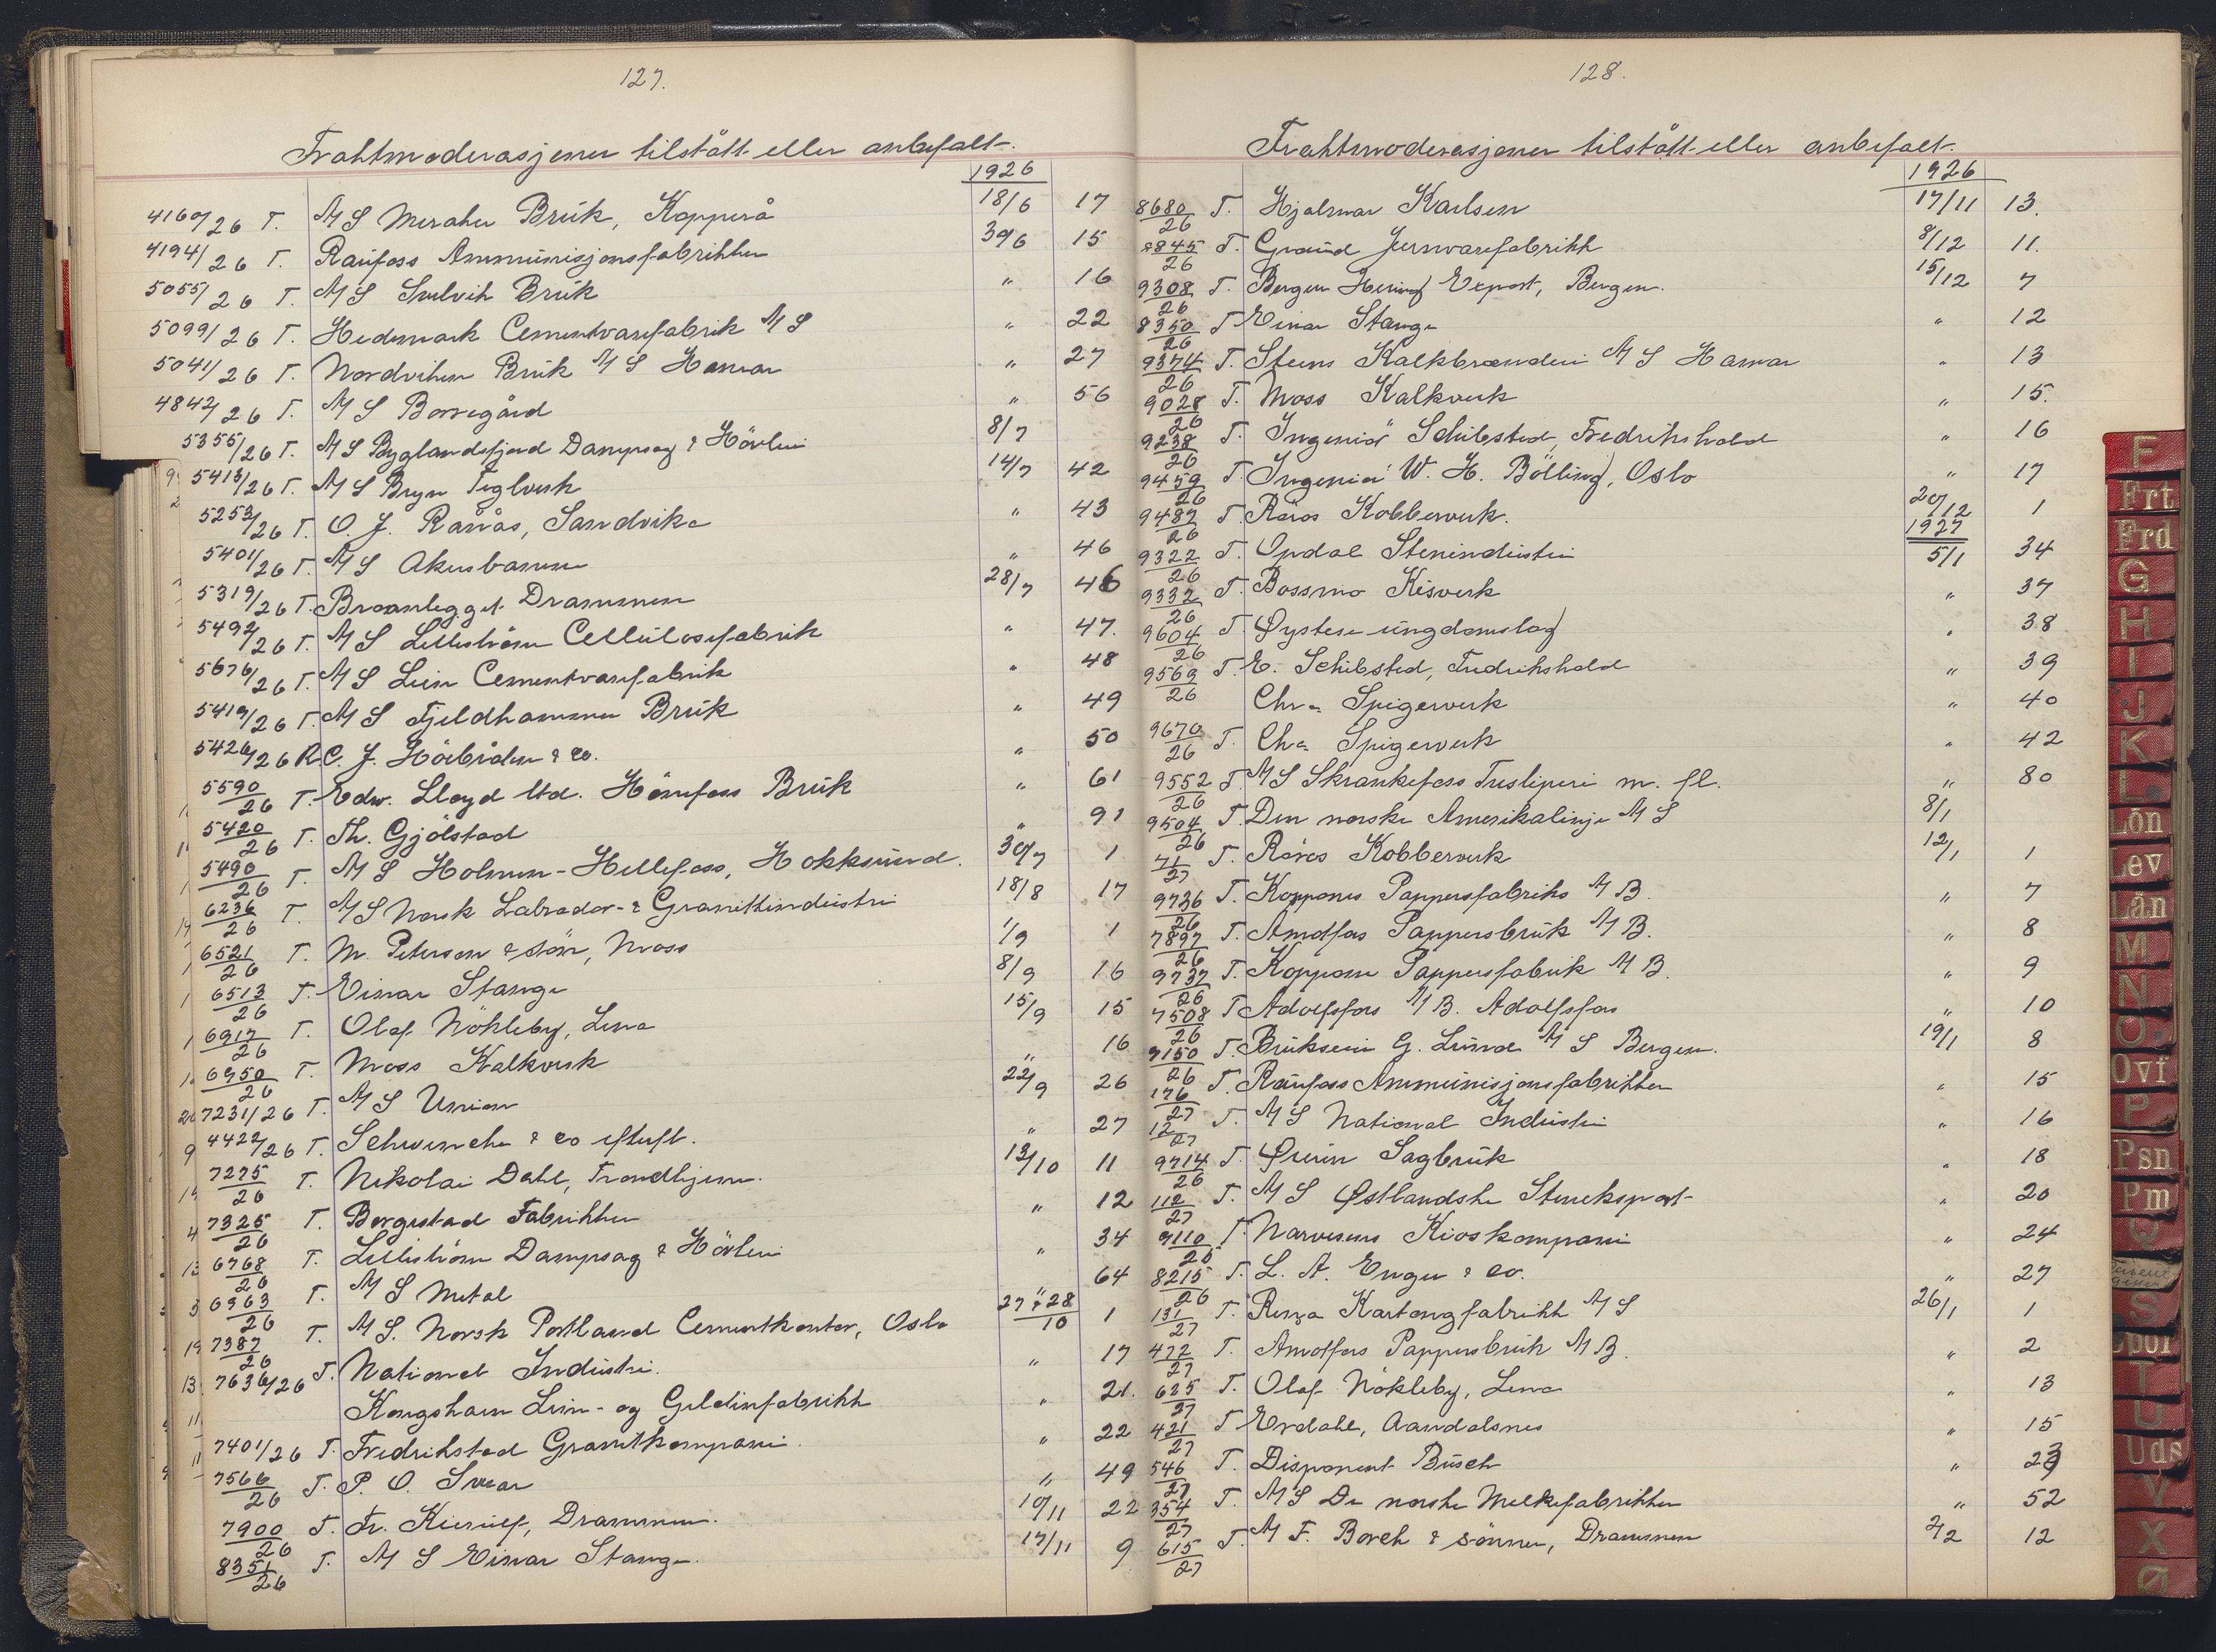 127.
Frahtmoderasjoner tilstått eller anbefalt.
1926
4160/26 T. A/S Meraker Bruk, Kopperå 18/6 17
4194/26 T. Raufoss Ammunisjonsfabrikker 30/6 15
5055/26 T. A/S Bruk " 16
5099/26 T. Hedemark Cementvarefabrik A/S " 22
5041/26 T. Nordviken Bruk A/S Hamar " 27
4842/26 T. A/S Borregård " 56
5355/26 T. A/S Byglandsfjord Dampsag & Hövleri 8/7
5413/26 T. A/S Bryn Teglverk 14/7 42
5253/26 T. O. J. Sandvika " 43
5401/26 T. A/S Akersbanerne " 46
5319/26 T. Broanlegget Drammen 28/7 46
5492/26 T. A/S Lilleström Cellulosefabrik " 47.
5676/26 T. A/S Lier Cementvarefabrik " 48
5419/26 T. A/S Fjeldhammer Bruk " 49
5426/26 R. C. J. & Co. " 50
5590/26 T. Edw. Lloyd ltd. Hönefoss Bruk " 61
5420/26 T. Th. Gjölstad " 91
5490/26 T. A/S Holmen-Hellefoss, Hokksund. 30/7 1
6236/26 T. A/S Norsk Labrador- & Granittindustri 18/8 17
6521/26 T. M. Peterson & Sön, Moss 1/9 1
6513/26 T. Einar Stange 8/9 16
6917/26 T. Olaf Nökleby, Lena 15/9 15
6950/26 T. Moss Kalkverk " 16
7231/26 T. A/S Union 22/9 26
4422/26 T. Schwencke & Co eftuft. " 27
7275/26 T. Nikolai Dahl, Trondhjem. 13/10 11
7325/26 T. Borgestad Fabrikker " 12
6768/26 T. Lilleström Dampsag & Hövleri " 34
6963/26 T. A/S Metal " 64
7387/26 T. A/S. Norsk Portland Cementkontor, Oslo 27 & 28/10 1
7636/26 T. National Industri. " 17
Kongshavn Lim- og Gelatinfabrikk " 21.
7401/26 T. Fredrikstad Granitkompani. " 22
7566/26 T. P. O. " 49
7900/26 T. Fr. Kierulf, Drammen. 10/11 22
8351/26 T. A/S Einar Stange. 17/11 9
128.
Frahtmoderasjoner tilstått eller anbefalt.
1926
8680/26 T. Hjalmar Karlsen 17/11 13.
8845/26 T. Jernvarefabrikk 8/12 11.
9308/26 T. Bergen Hering Export, Bergen. 15/12 7
8350/26 T Einar Stange " 12
9374/26 T. Steens Kalkbrænderi A/S Hamar " 13
9028/26 T. Moss Kalkverk " 15.
9238/26 T. Ingeniör Schibsted, Fredrikshald " 16
9459/26 T. Ingeniör W. H. Bölling, Oslo " 17
9482/26 T. Röros Kobberverk. 20/12 1
1927
9322/26 T. Opdal Stenindustri 5/1 34
9332/26 T. Bossmo Kisverk " 37
9604/26 T. Øystese ungdomslag " 38
9569/26 T. E. Schibsted, Fredrikshald " 39
Chr.a Spigerverk " 40
9670/26 T. Chr.a Spigerverk " 42
9552/26 T. A/S Skrankefoss Tresliperi m. fl. " 80
9504/26 T. Den norske Amerikalinje A/S 8/1
71/27 T. Röros Kobberverk 12/1 1
9736/26 T. Koppoms Pappersfabriks A/B. " 7
7897/26 T. Åmotfors Pappersbruk A/B. " 8
9737/26 T. Koppom Pappersfabrik A/B. " 9
7508/26 T Adolfsfors A/B. Adolfsfors " 10
9150/26 T. Brukseier G. Lunde A/S Bergen. 19/1 8
176/27 T. Raufoss Ammunisjonsfabrikker " 15
12/27 T. A/S National Industri " 16
9714/26 T. Sagbruk " 18
112/27 T. A/S Østlandske Steneksport " 20
9110/26 T. Narvesens Kioskompani " 24
8215/26 T. L. A. Enger & Co. " 27
131/27 T. Rena Kartongfabrikk A/S 26/1 1
472/27 T. Åmotfors Pappersbruk A/B. " 2
625/27 T. Olaf Nökleby, Lena " 13
421/27 T Erdahl, Aandalsnes " 15
546/27 T. Disponent Busch " 23
354/27 T. A/S De norske Melkefabrikker " 52
615/27 T. A/S F. Borch & Sönner, Drammen 2/2 12
F
Frt
Frd
G
H
I
J
K
L
Lön
Lev
Lån
M
N
O
Ovf
P
Psn
Pm
Q
S
Spor
T
U
Uds
V
X
Ø